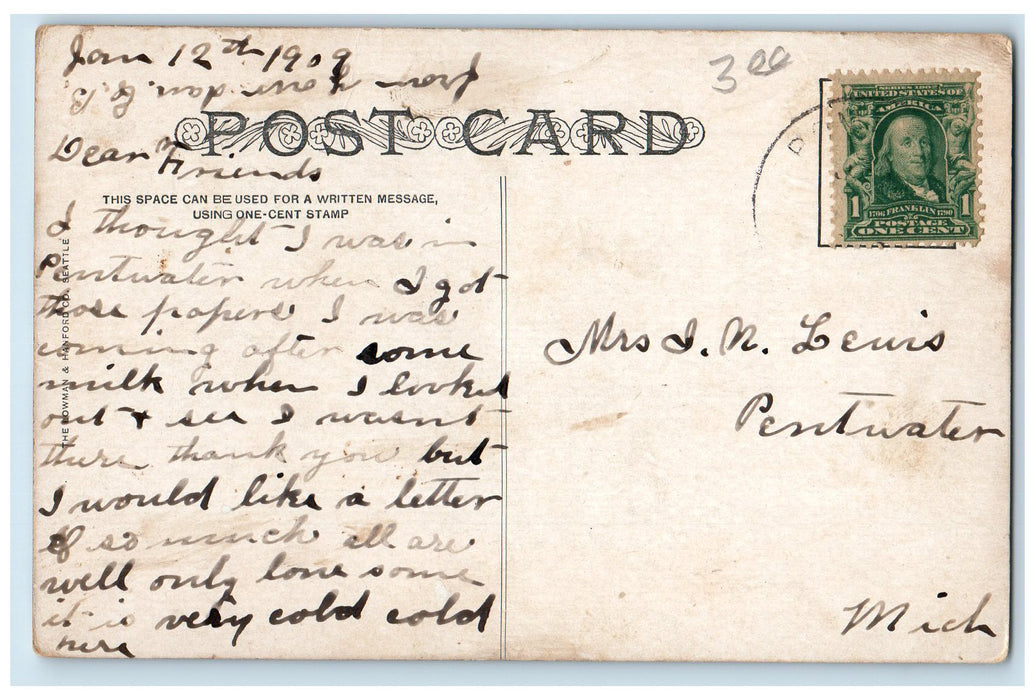 Jan 12th 1909
3.00
POST CARD
Dear Friends
THIS SPACE CAN BE USED FOR A WRITTEN MESSAGE,
USING ONE-CENT STAMP
I thought I was in
Pentwater when I got
those papers I was
coming after some
milk when I looked
out + see I wasnt
there thank you but
I would like a letter
if so much all are
well only lone some
it is very cold cold
here
THE BOWMAN & HANFORD CO. SEATTLE
SERIES 1902
UNITED STATES OF
AMERICA
1 1706 FRANKLIN 1790 1
POSTAGE
ONE CENT
Mrs I. N. Lewis
Pentwater
Mich